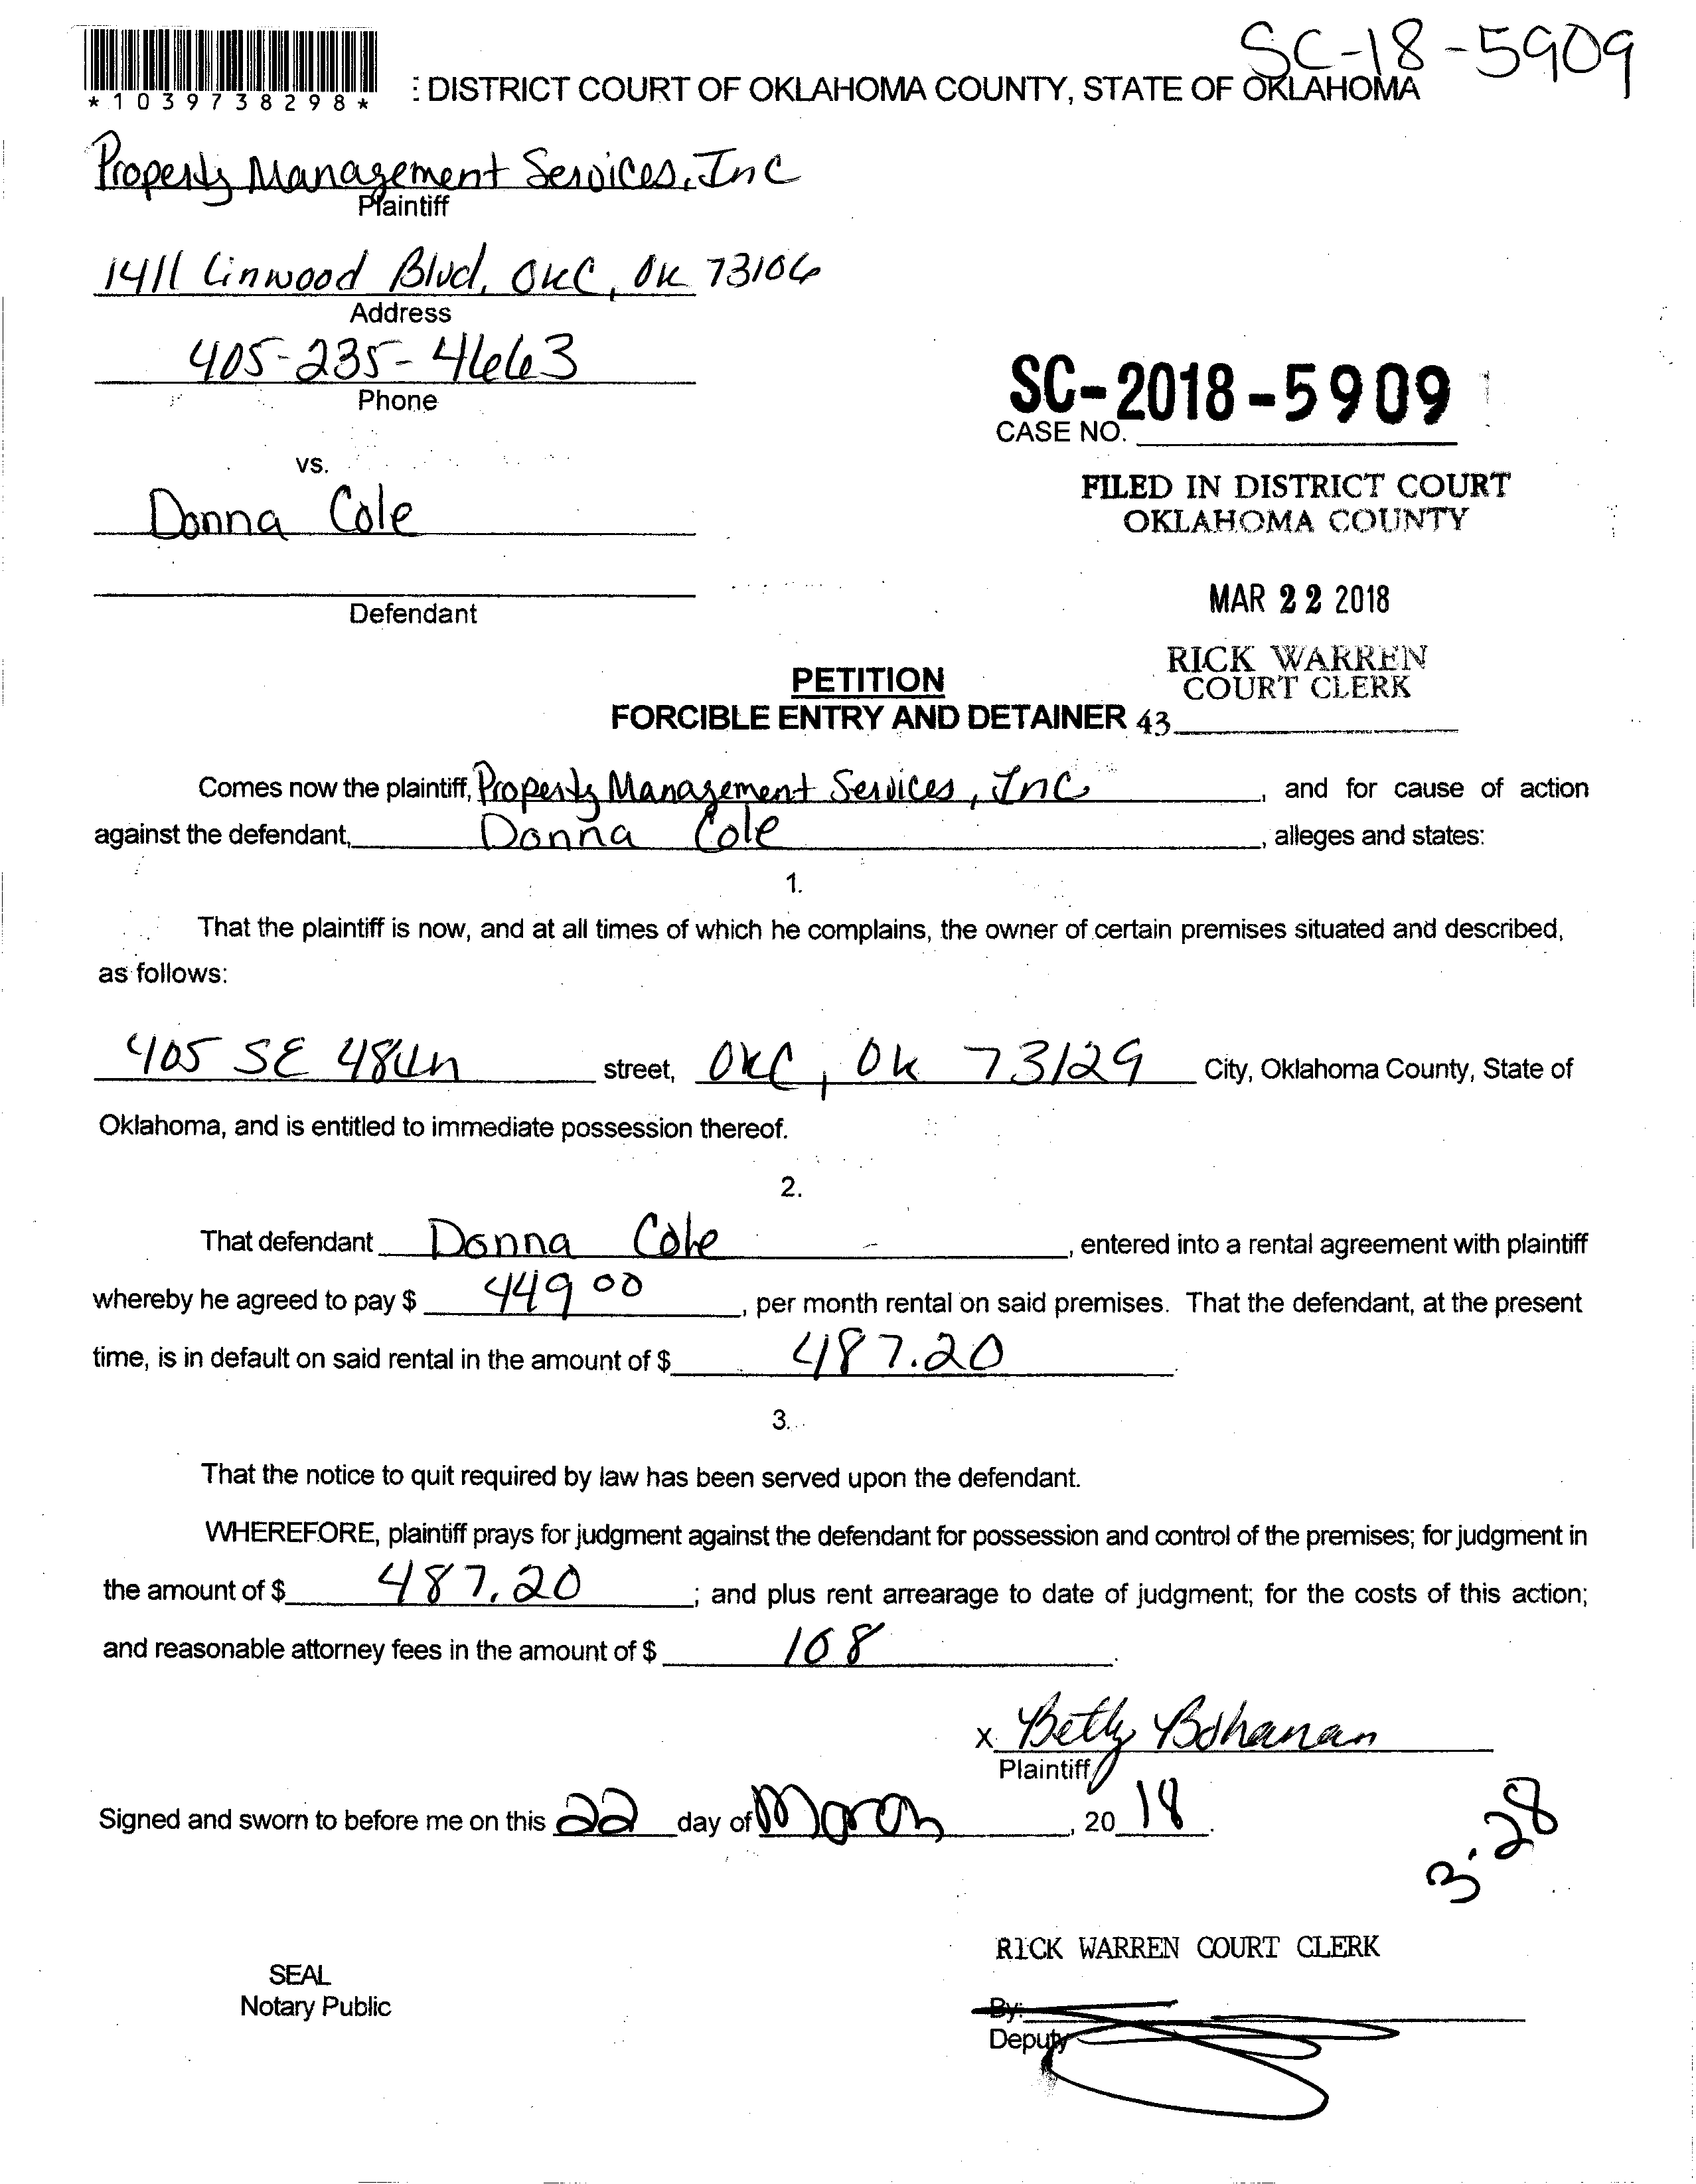 SC-18-5909
*1039738298*
: DISTRICT COURT OF OKLAHOMA COUNTY, STATE OF OKLAHOMA
Property Management Services, Inc
Plaintiff
1411 Linwood Blvd, OKC, OK 73106
Address
405-235-4663
Phone
SC-2018-5909
CASE NO.
vs.
Donna Cole
FILED IN DISTRICT COURT
OKLAHOMA COUNTY
Defendant
MAR 22 2018
RICK WARREN
COURT CLERK
PETITION
FORCIBLE ENTRY AND DETAINER 43
Comes now the plaintiff, Property Management Services, Inc, and for cause of action
against the defendant, Donna Cole, alleges and states:
1.
That the plaintiff is now, and at all times of which he complains, the owner of certain premises situated and described,
as follows:
405 SE 48th street, OKC, OK 73129 City, Oklahoma County, State of
Oklahoma, and is entitled to immediate possession thereof.
2.
That defendant Donna Cole, entered into a rental agreement with plaintiff
whereby he agreed to pay $ 449 00, per month rental on said premises. That the defendant, at the present
time, is in default on said rental in the amount of $ 487.20.
3.
That the notice to quit required by law has been served upon the defendant.
WHEREFORE, plaintiff prays for judgment against the defendant for possession and control of the premises; for judgment in
the amount of $ 487.20; and plus rent arrearage to date of judgment; for the costs of this action;
and reasonable attorney fees in the amount of $ 108.
x Betty Bohanan
Plaintiff
Signed and sworn to before me on this 22 day of March, 2018.
3.28
RICK WARREN COURT CLERK
SEAL
Notary Public
By:
Deputy